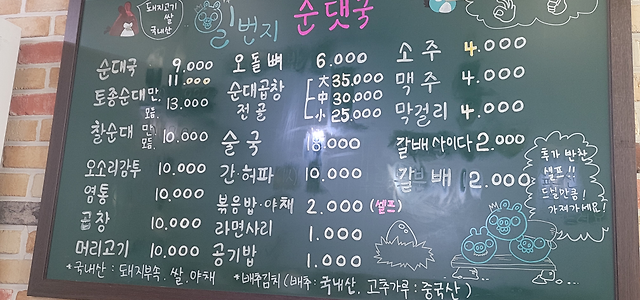 돼지고기
쌀
국내산
일번지
순댓국
순대국 9.000
11.000
토종순대 만. 모듬. 13.000
찰순대 만. 모듬. 10.000
오소리감투 10.000
염통 10.000
곱창 10.000
머리고기 10.000
오돌뼈 6.000
순대곱창
전골
大 35.000
中 30.000
小 25.000
술국
간·허파 10.000
볶음밥·야채 2.000 (셀프)
라면사리 1.000
공기밥 1.000
소주 4.000
맥주 4.000
막걸리 4.000
갈배 사이다 2.000
갈배 2.000
추가 반찬
셀프!!
드실만큼!
가져가세요!
*국내산 : 돼지부속. 쌀. 야채
*배추김치 (배추: 국내산. 고추가루: 중국산)